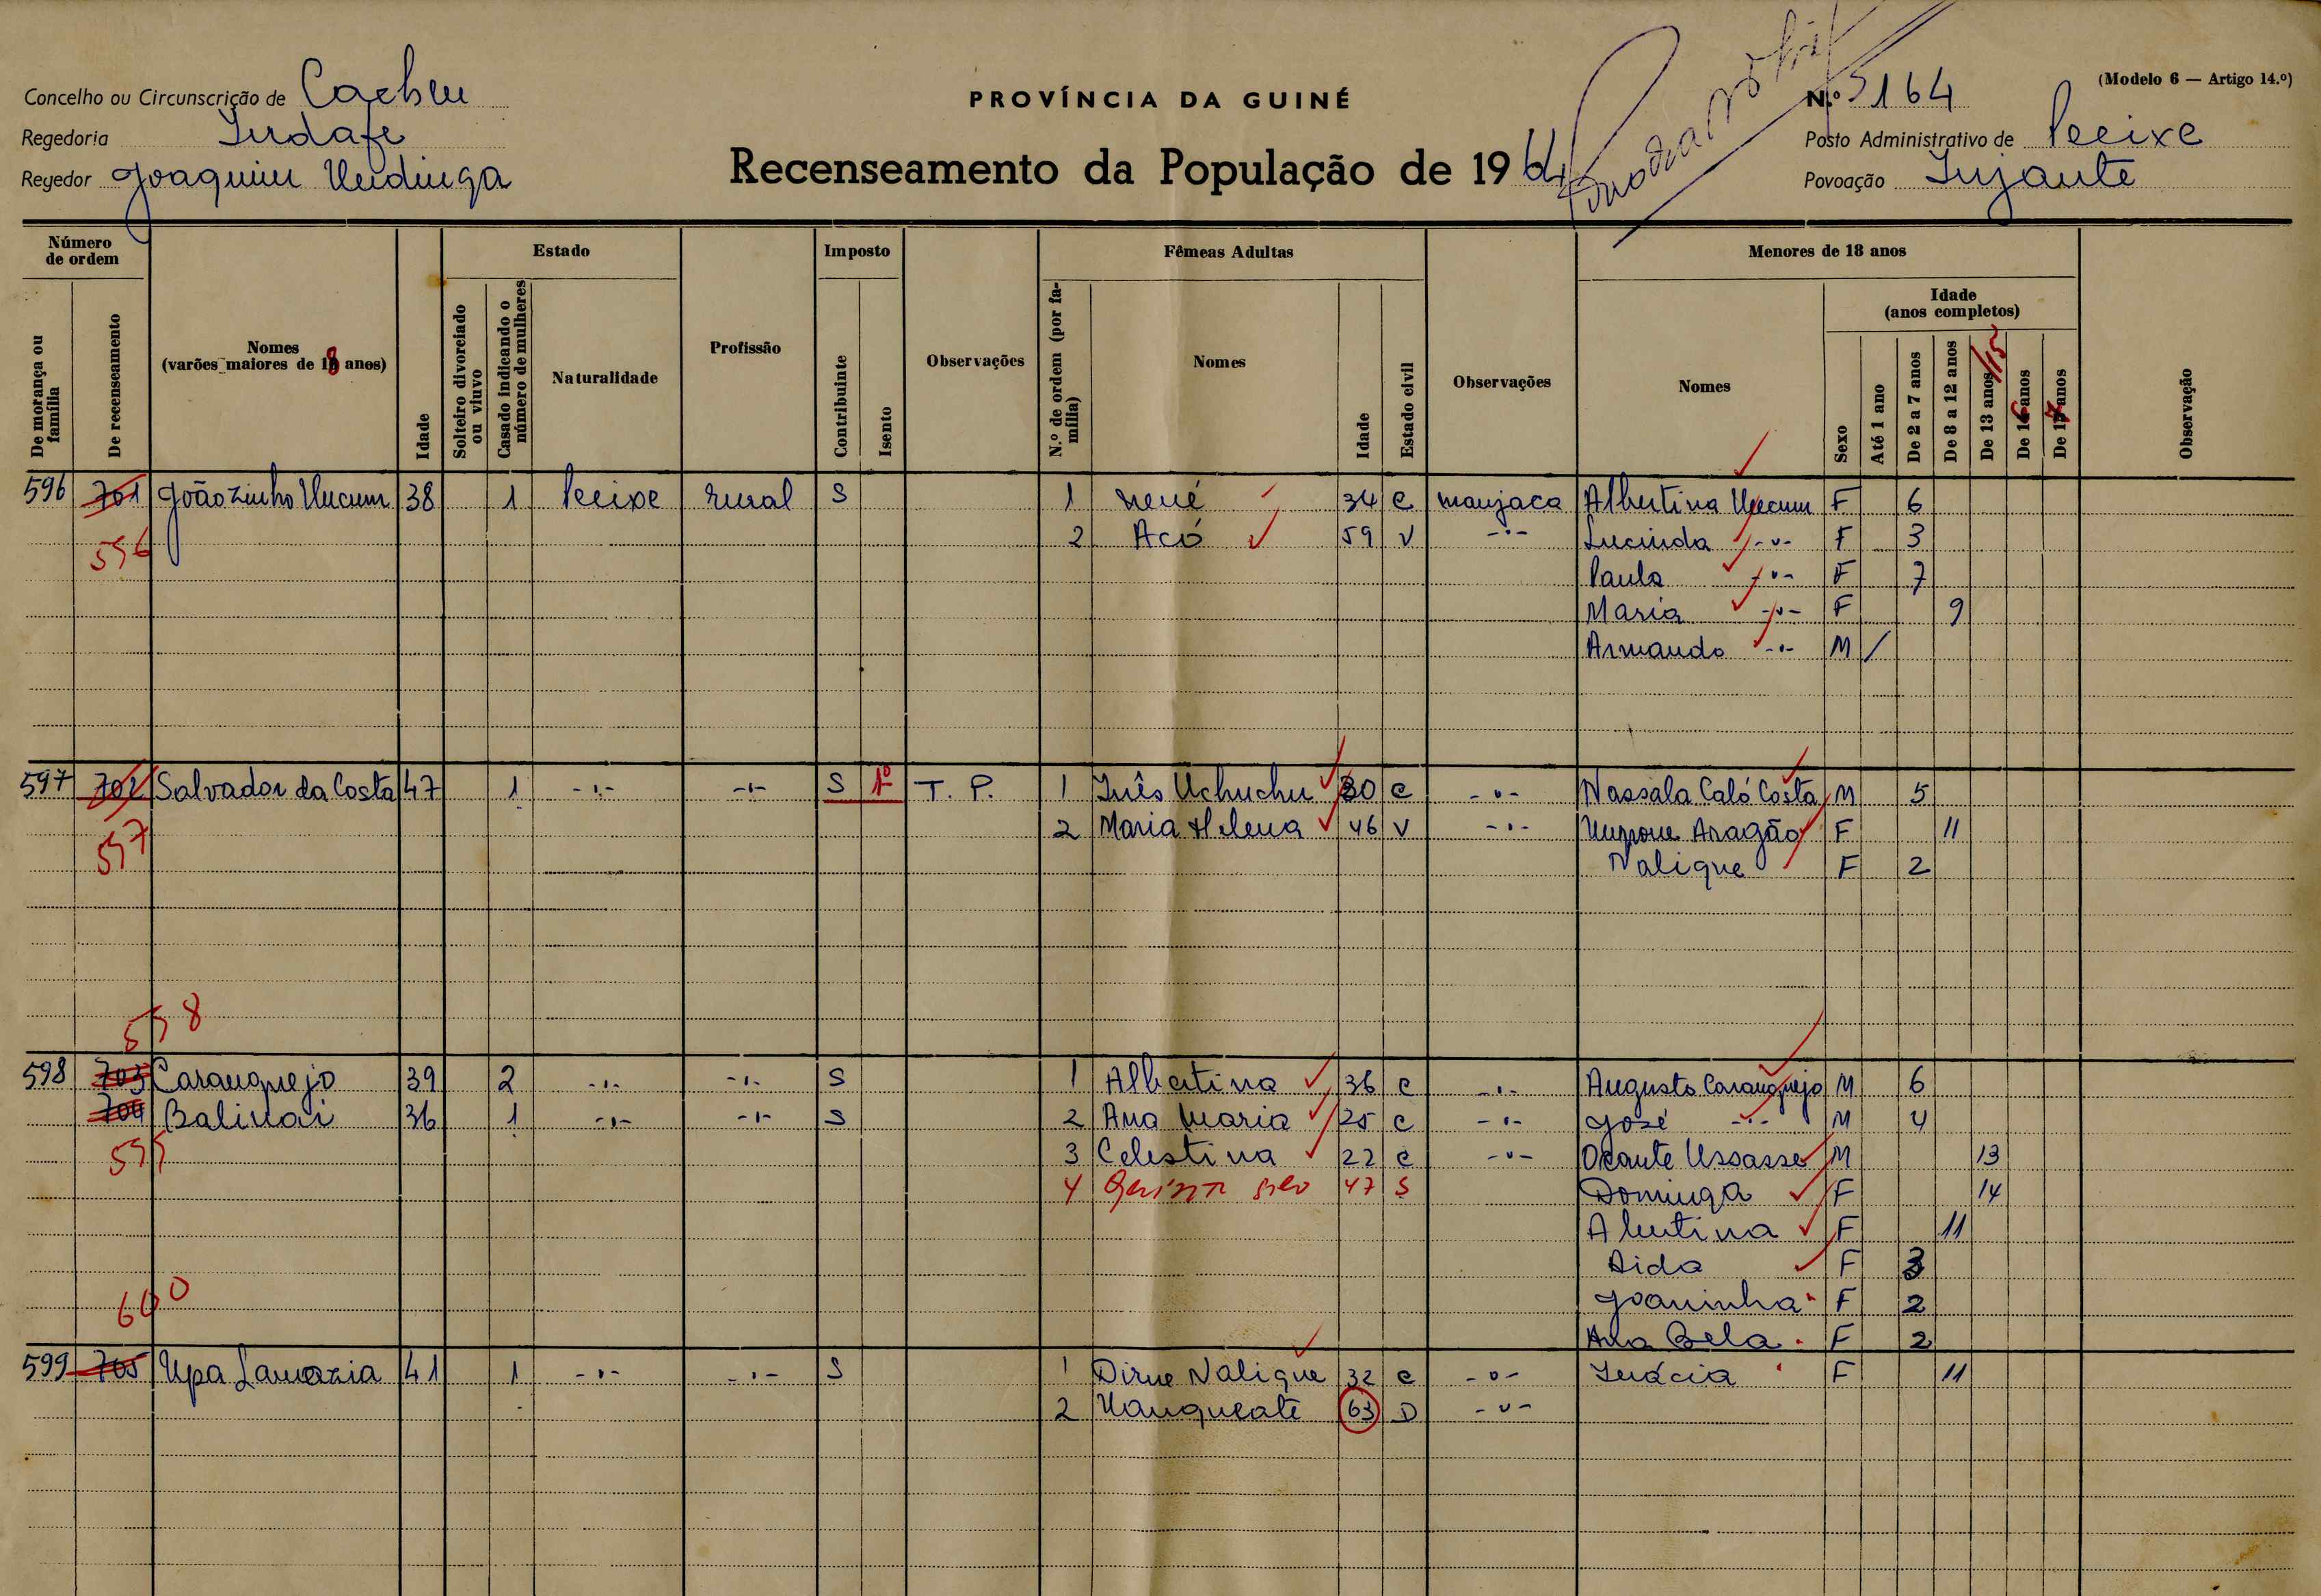 (Modelo 6 — Artigo 14.º)
Concelho ou Circunscrição de Cacheu
PROVÍNCIA DA GUINÉ
N.º 3164
Regedoria Indafe
Posto Administrativo de Pecixe
Regedor Joaquim Undinga
Recenseamento da População de 1964
Povoação Injante
Número de ordem
Estado
Imposto
Fêmeas Adultas
Menores de 18 anos
De morança ou família
De recenseamento
Nomes (varões maiores de 18 anos)
Idade
Solteiro divorciado ou viuvo
Casado indicando o número de mulheres
Naturalidade
Profissão
Contribuinte
Isento
Observações
N.º de ordem (por família)
Nomes
Idade
Estado civil
Observações
Nomes
Sexo
Idade (anos completos)
Até 1 ano
De 2 a 7 anos
De 8 a 12 anos
De 13 anos /15
De 16 anos
De 17 anos
Observação
596 701 Joãozinho Ucum 38 1 Pecixe rural S 1 Nené 34 C manjaca Albertina Ucum F 6
596 2 Aco 59 V -"- Lucinda -"- F 3
Paula -"- F 7
Maria -"- F 9
Armando -"- M /
597 702 Salvador da Costa 47 1 -"- -"- S 1º T. P. 1 Inês Uchuchu 30 C -"- Nassala Caló Costa M 5
597 2 Maria Helena 46 V -"- Aragão F 11
Nalique F 2
598
598 703 Caranquejo 39 2 -"- -"- S 1 Albertina 36 C -"- Augusto Caranquejo M 6
704 Balinai 36 1 -"- -"- S 2 Ana Maria 25 C -"- José -"- M 4
599 3 Celestina 22 C -"- Ocante Ussasse M 13
4 47 S Dominga F 14
Albertina F 11
Aida F 3
600 Joaninha F 2
Ana Bela F 2
599 705 Upa Lamazia 41 1 -"- -"- S 1 Dirne Nalique 32 C -"- Inácia F 11
2 Uanqueate 63 D -"-